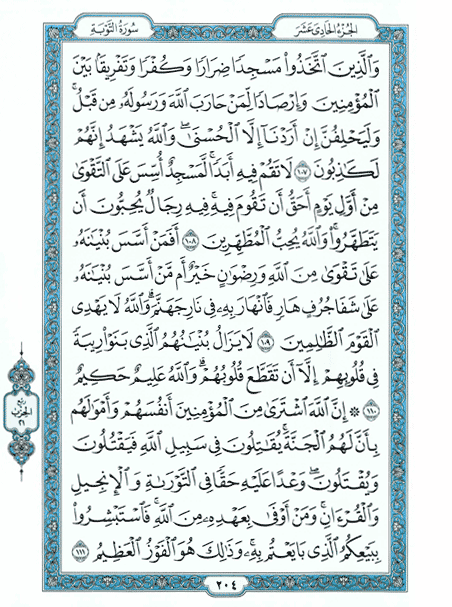 الجزء الحادي عشر
سورة التوبة
وَالَّذِينَ اتَّخَذُوا مَسْجِدًا ضِرَارًا وَكُفْرًا وَتَفْرِيقًا بَيْنَ
الْمُؤْمِنِينَ وَإِرْصَادًا لِّمَنْ حَارَبَ اللَّهَ وَرَسُولَهُ مِن قَبْلُ ۚ
وَلَيَحْلِفُنَّ إِنْ أَرَدْنَا إِلَّا الْحُسْنَىٰ ۖ وَاللَّهُ يَشْهَدُ إِنَّهُمْ
لَكَاذِبُونَ ١٠٧ لَا تَقُمْ فِيهِ أَبَدًا ۚ لَّمَسْجِدٌ أُسِّسَ عَلَى التَّقْوَىٰ
مِنْ أَوَّلِ يَوْمٍ أَحَقُّ أَن تَقُومَ فِيهِ ۚ فِيهِ رِجَالٌ يُحِبُّونَ أَن
يَتَطَهَّرُوا ۚ وَاللَّهُ يُحِبُّ الْمُطَّهِّرِينَ ١٠٨ أَفَمَنْ أَسَّسَ بُنْيَانَهُ
عَلَىٰ تَقْوَىٰ مِنَ اللَّهِ وَرِضْوَانٍ خَيْرٌ أَم مَّنْ أَسَّسَ بُنْيَانَهُ
عَلَىٰ شَفَا جُرُفٍ هَارٍ فَانْهَارَ بِهِ فِي نَارِ جَهَنَّمَ ۗ وَاللَّهُ لَا يَهْدِي
الْقَوْمَ الظَّالِمِينَ ١٠٩ لَا يَزَالُ بُنْيَانُهُمُ الَّذِي بَنَوْا رِيبَةً
فِي قُلُوبِهِمْ إِلَّا أَن تَقَطَّعَ قُلُوبُهُمْ ۗ وَاللَّهُ عَلِيمٌ حَكِيمٌ
١١٠ ۞ إِنَّ اللَّهَ اشْتَرَىٰ مِنَ الْمُؤْمِنِينَ أَنفُسَهُمْ وَأَمْوَالَهُم
بِأَنَّ لَهُمُ الْجَنَّةَ ۚ يُقَاتِلُونَ فِي سَبِيلِ اللَّهِ فَيَقْتُلُونَ
وَيُقْتَلُونَ ۖ وَعْدًا عَلَيْهِ حَقًّا فِي التَّوْرَاةِ وَالْإِنجِيلِ
وَالْقُرْآنِ ۚ وَمَنْ أَوْفَىٰ بِعَهْدِهِ مِنَ اللَّهِ ۚ فَاسْتَبْشِرُوا
بِبَيْعِكُمُ الَّذِي بَايَعْتُم بِهِ ۚ وَذَٰلِكَ هُوَ الْفَوْزُ الْعَظِيمُ ١١١
ربع
الحزب
٢١
٢٠٤